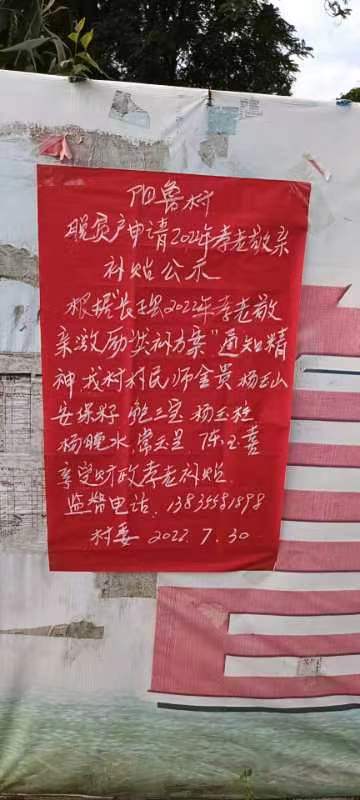 阳鲁村
脱贫户申请2022年孝老敬亲
补贴公示
根据长子县2022年孝老敬
亲激励"奖补方案"通知精
神我村村民师金贵 杨玉山
安保籽 鲍三宝 杨玉柱
杨晚水 常玉呈 陈玉喜
享受财政孝老补贴
监督电话.13835581898
村委 2022.7.30